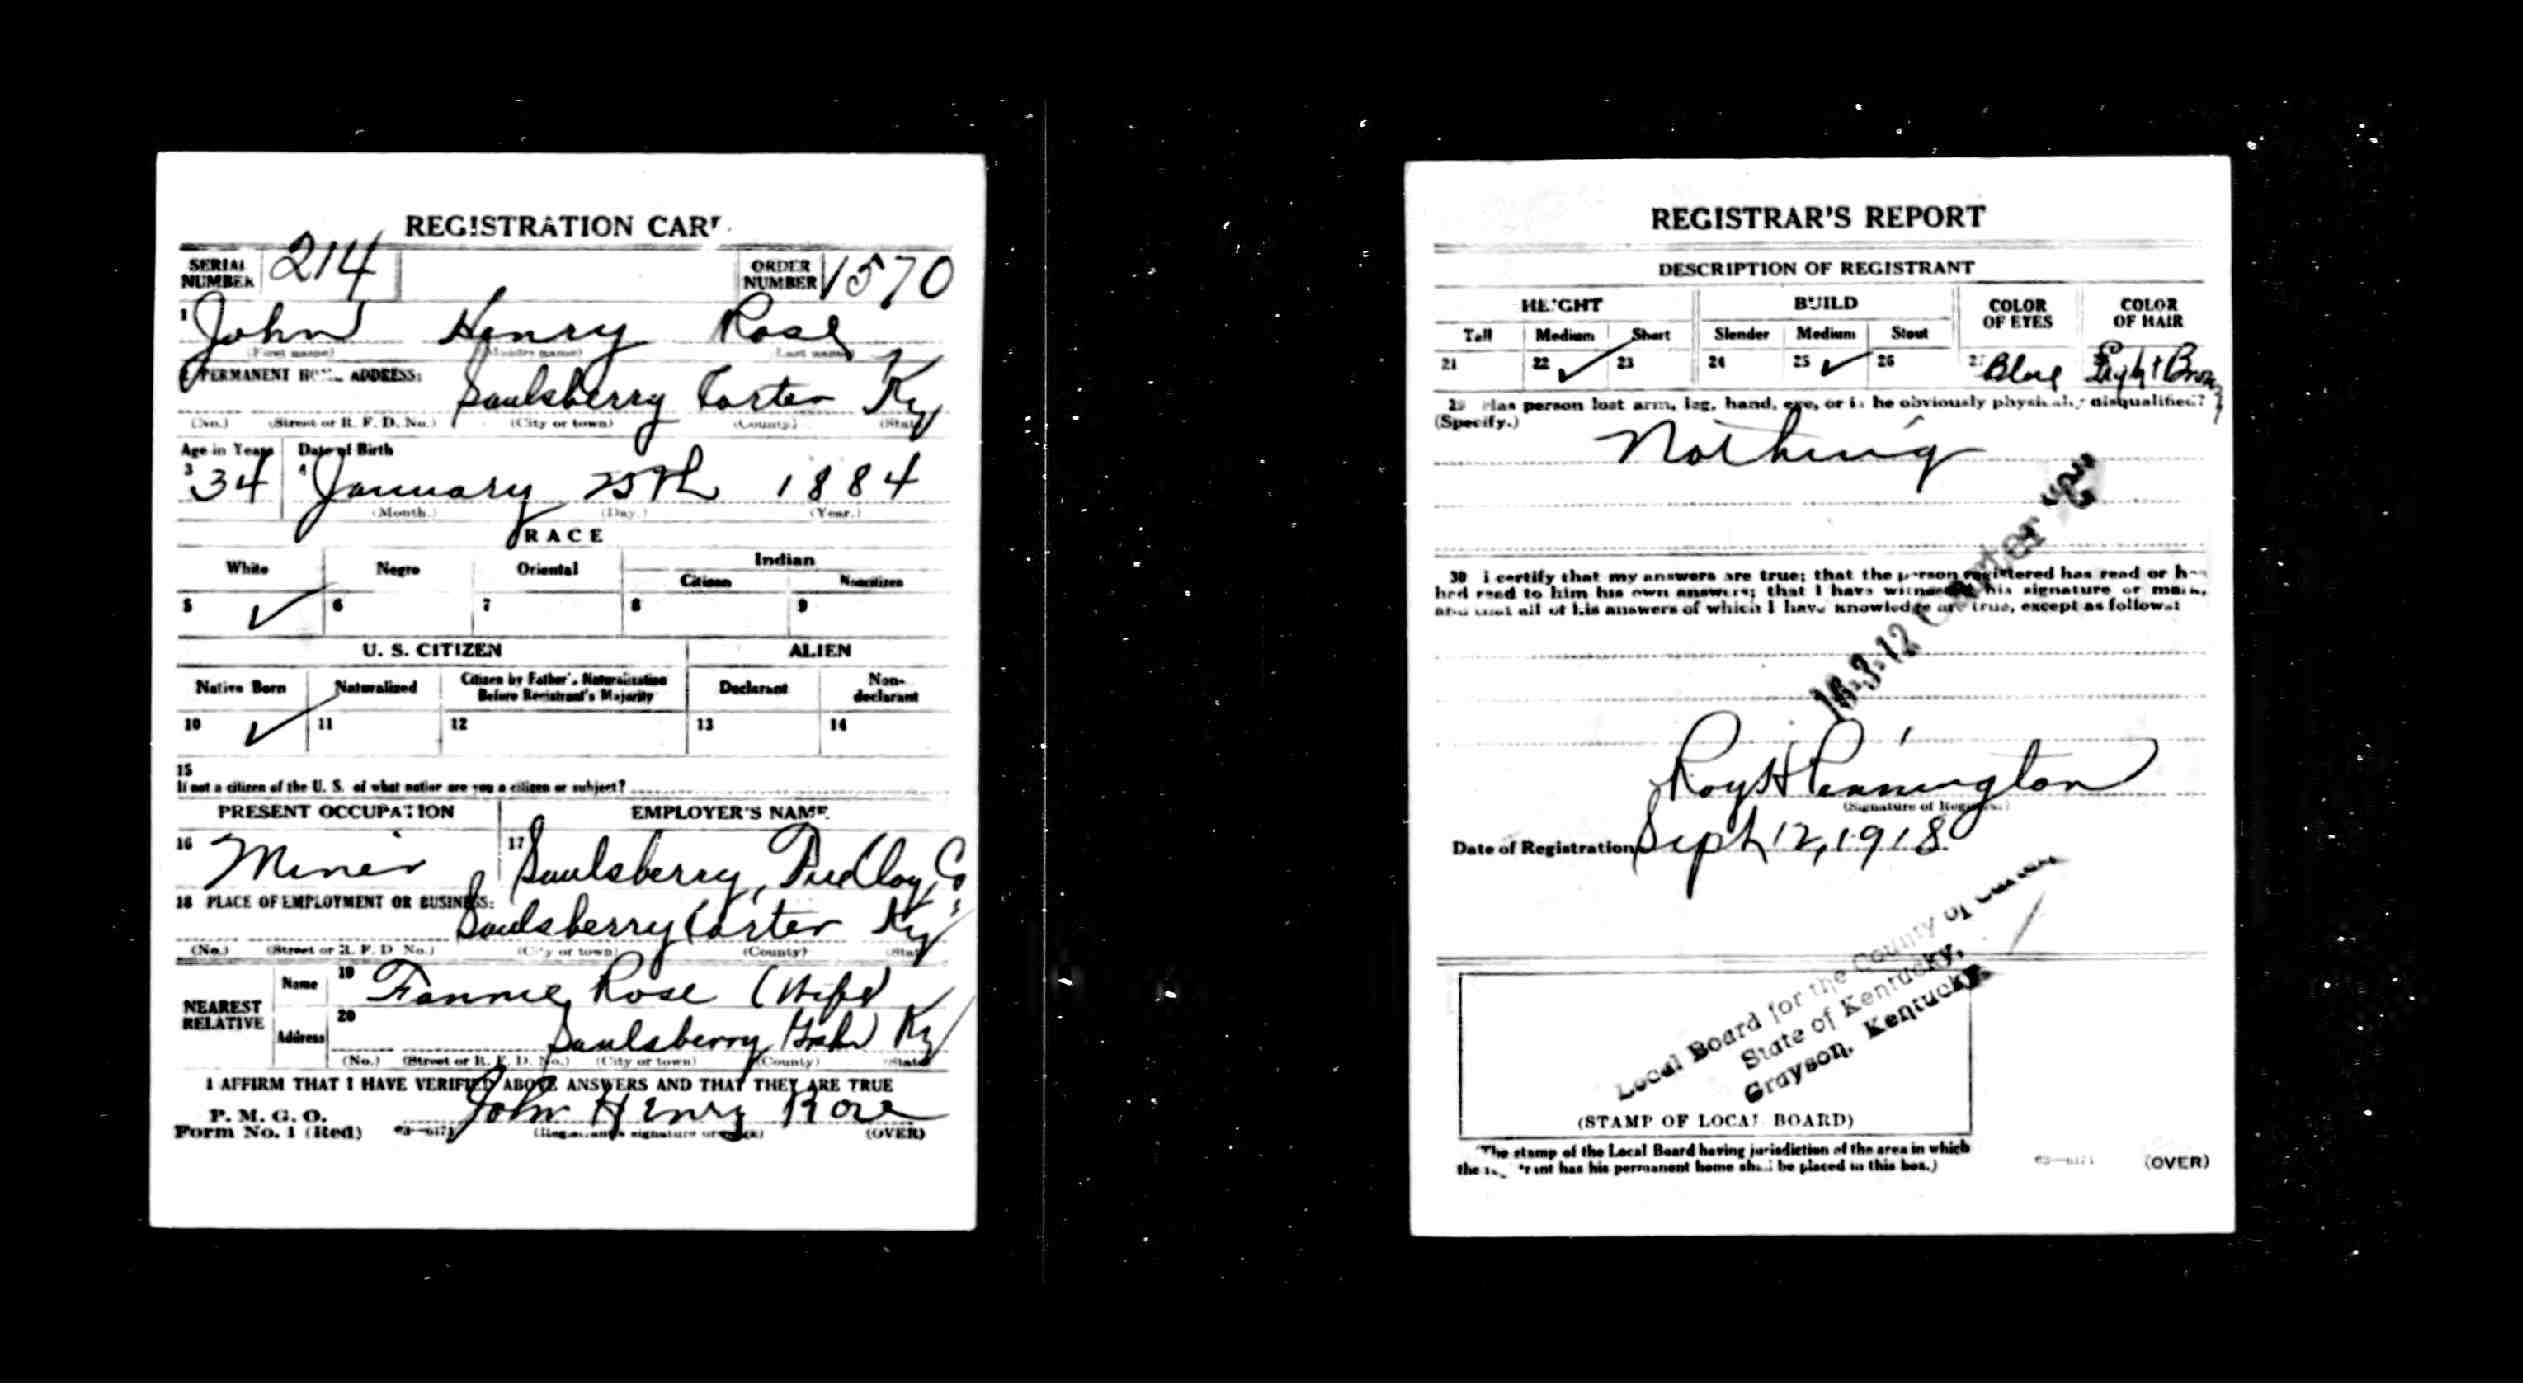 REGISTRATION CAR
SERIAL NUMBER 214 ORDER NUMBER 1570
1 John Henry Rose
(First name) (Middle name) (Last name)
PERMANENT HOME ADDRESS: Saulsberry Carter Ky
(No.) (Street or R. F. D. No.) (City or town) (County) (State)
Age in Years Date of Birth
3 34 4 January 25th 1884
(Month.) (Day.) (Year.)
RACE
White Negro Oriental Indian
Citizen Noncitizen
5 ✓ 6 7 8 9
U. S. CITIZEN ALIEN
Native Born Naturalized Citizen by Father's Naturalization Before Registrant's Majority Declarant Non-declarant
10 ✓ 11 12 13 14
15
If not a citizen of the U. S. of what nation are you a citizen or subject?
PRESENT OCCUPATION EMPLOYER'S NAME
16 Miner 17 Saulsberry, Co
18 PLACE OF EMPLOYMENT OR BUSINESS:
Saulsberry Carter Ky
(No.) (Street or R. F. D. No.) (City or town) (County) (State)
NEAREST RELATIVE
Name 19 Fannie Rose (Wife)
Address 20 Saulsberry Ky
(No.) (Street or R. F. D. No.) (City or town) (County) (State)
I AFFIRM THAT I HAVE VERIFIED ABOVE ANSWERS AND THAT THEY ARE TRUE
P. M. G. O.
Form No. 1 (Red) John Henry Rose
(Registrant's signature or mark) (OVER)
REGISTRAR'S REPORT
DESCRIPTION OF REGISTRANT
HEIGHT BUILD COLOR OF EYES COLOR OF HAIR
Tall Medium Short Slender Medium Stout
21 22 ✓ 23 24 25 ✓ 26 27 Blue Light Brown
29 Has person lost arm, leg, hand, eye, or is he obviously physically disqualified?
(Specify.)
Nothing
30 I certify that my answers are true; that the person registered has read or has
had read to him his own answers; that I have witnessed his signature or mark,
and that all of his answers of which I have knowledge are true, except as follows:
16-3-12 Carter
Roy H Pennington
(Signature of Registrar.)
Date of Registration Sept 12, 1918
Local Board for the County of Carter
State of Kentucky,
Grayson, Kentucky
(STAMP OF LOCAL BOARD)
(The stamp of the Local Board having jurisdiction of the area in which
the registrant has his permanent home shall be placed in this box.)
(OVER)